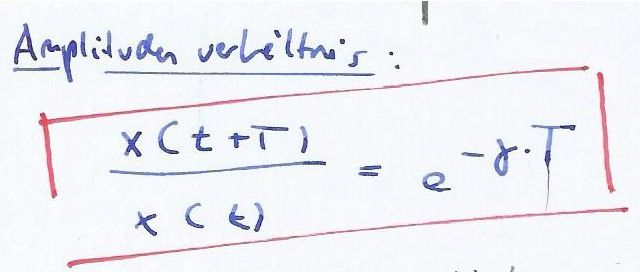 Amplitudenverhältnis:
x(t+T)
/ x(t) = e^{-γ·T}